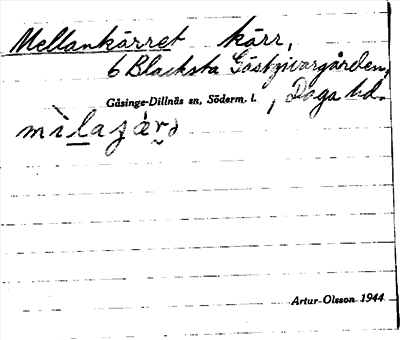 Mellankärret kärr,
6 Blacksta Gästgivargården,
Gåsinge-Dillnäs sn, Söderm. l., Daga hd.
Artur Olsson 1944